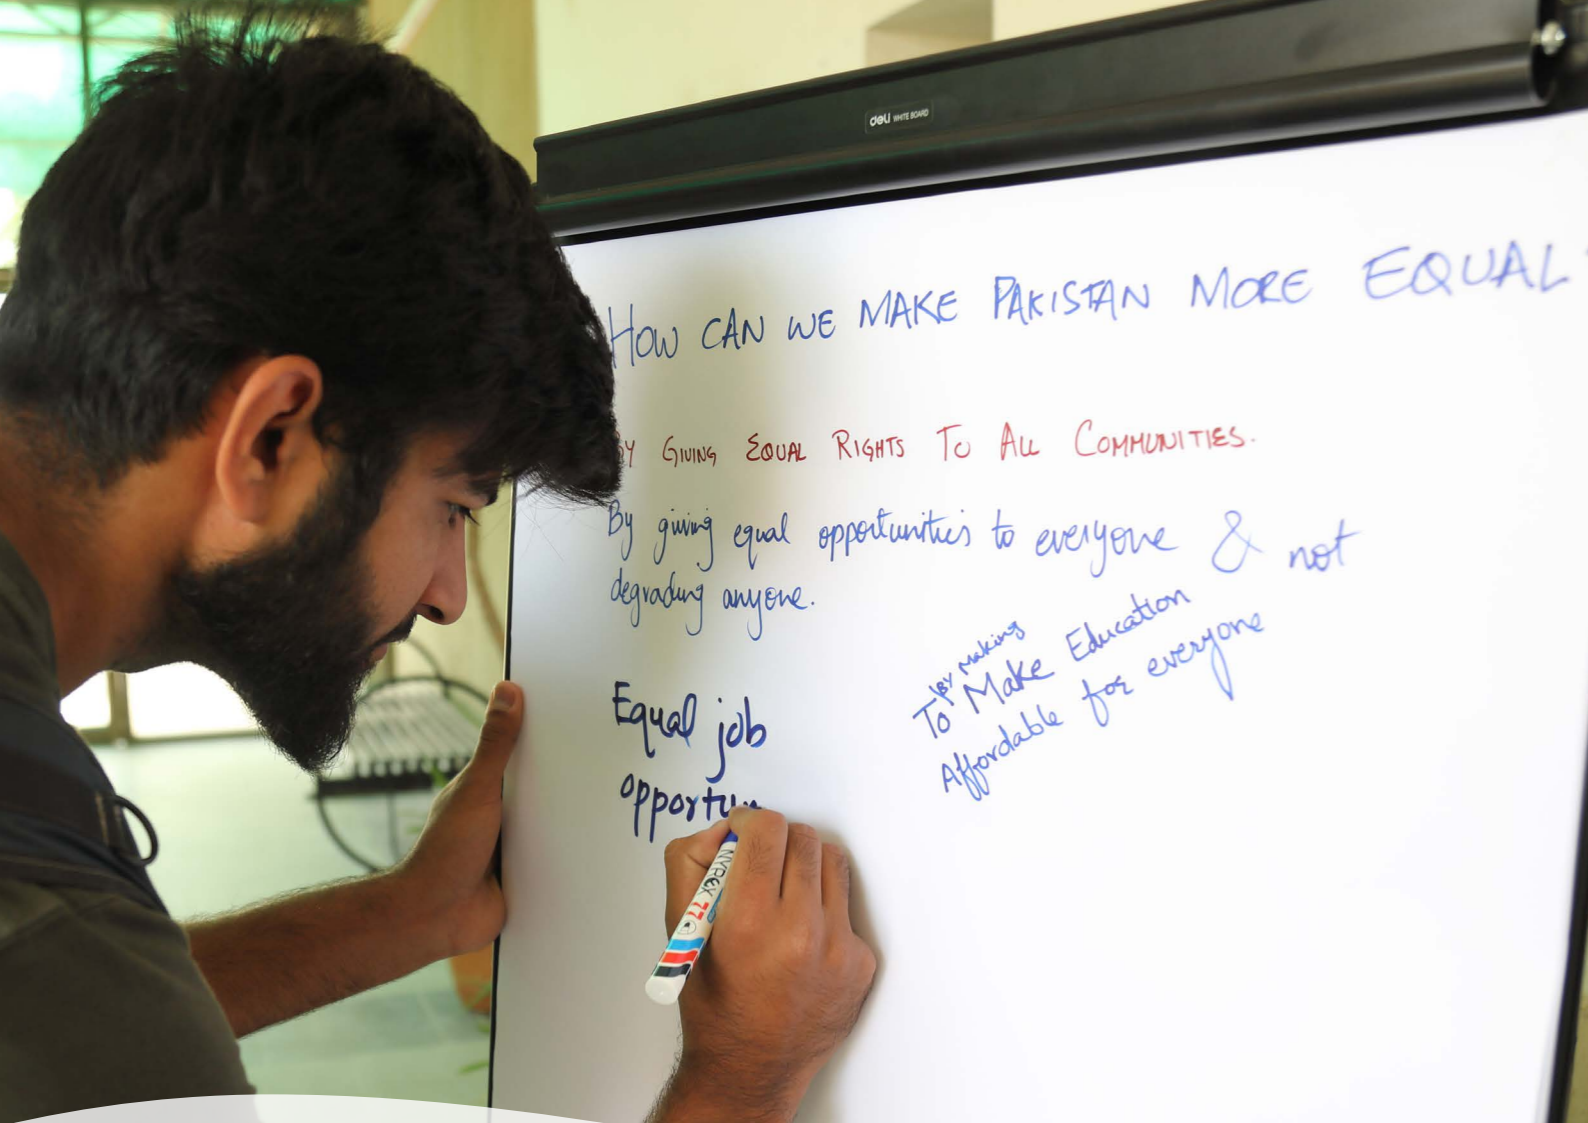 deli WHITE BOARD
HOW CAN WE MAKE PAKISTAN MORE EQUAL
BY GIVING EQUAL RIGHTS TO ALL COMMUNITIES.
By giving equal opportunities to everyone & not
degrading anyone.
BY Making
To Make Education
Affordable for everyone
Equal job
opportun
NYPEX 77